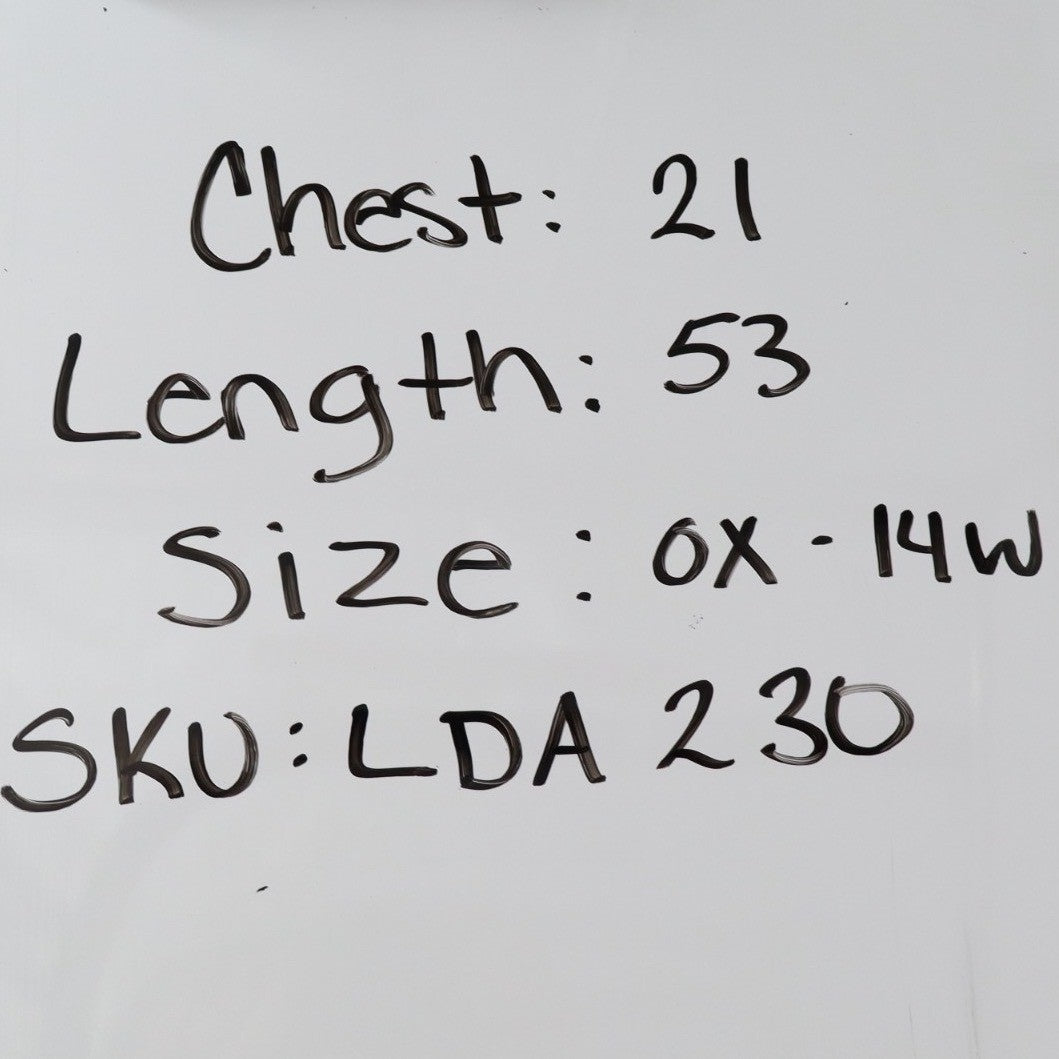 Chest: 21
Length: 53
Size: OX - 14W
SKU: LDA 230